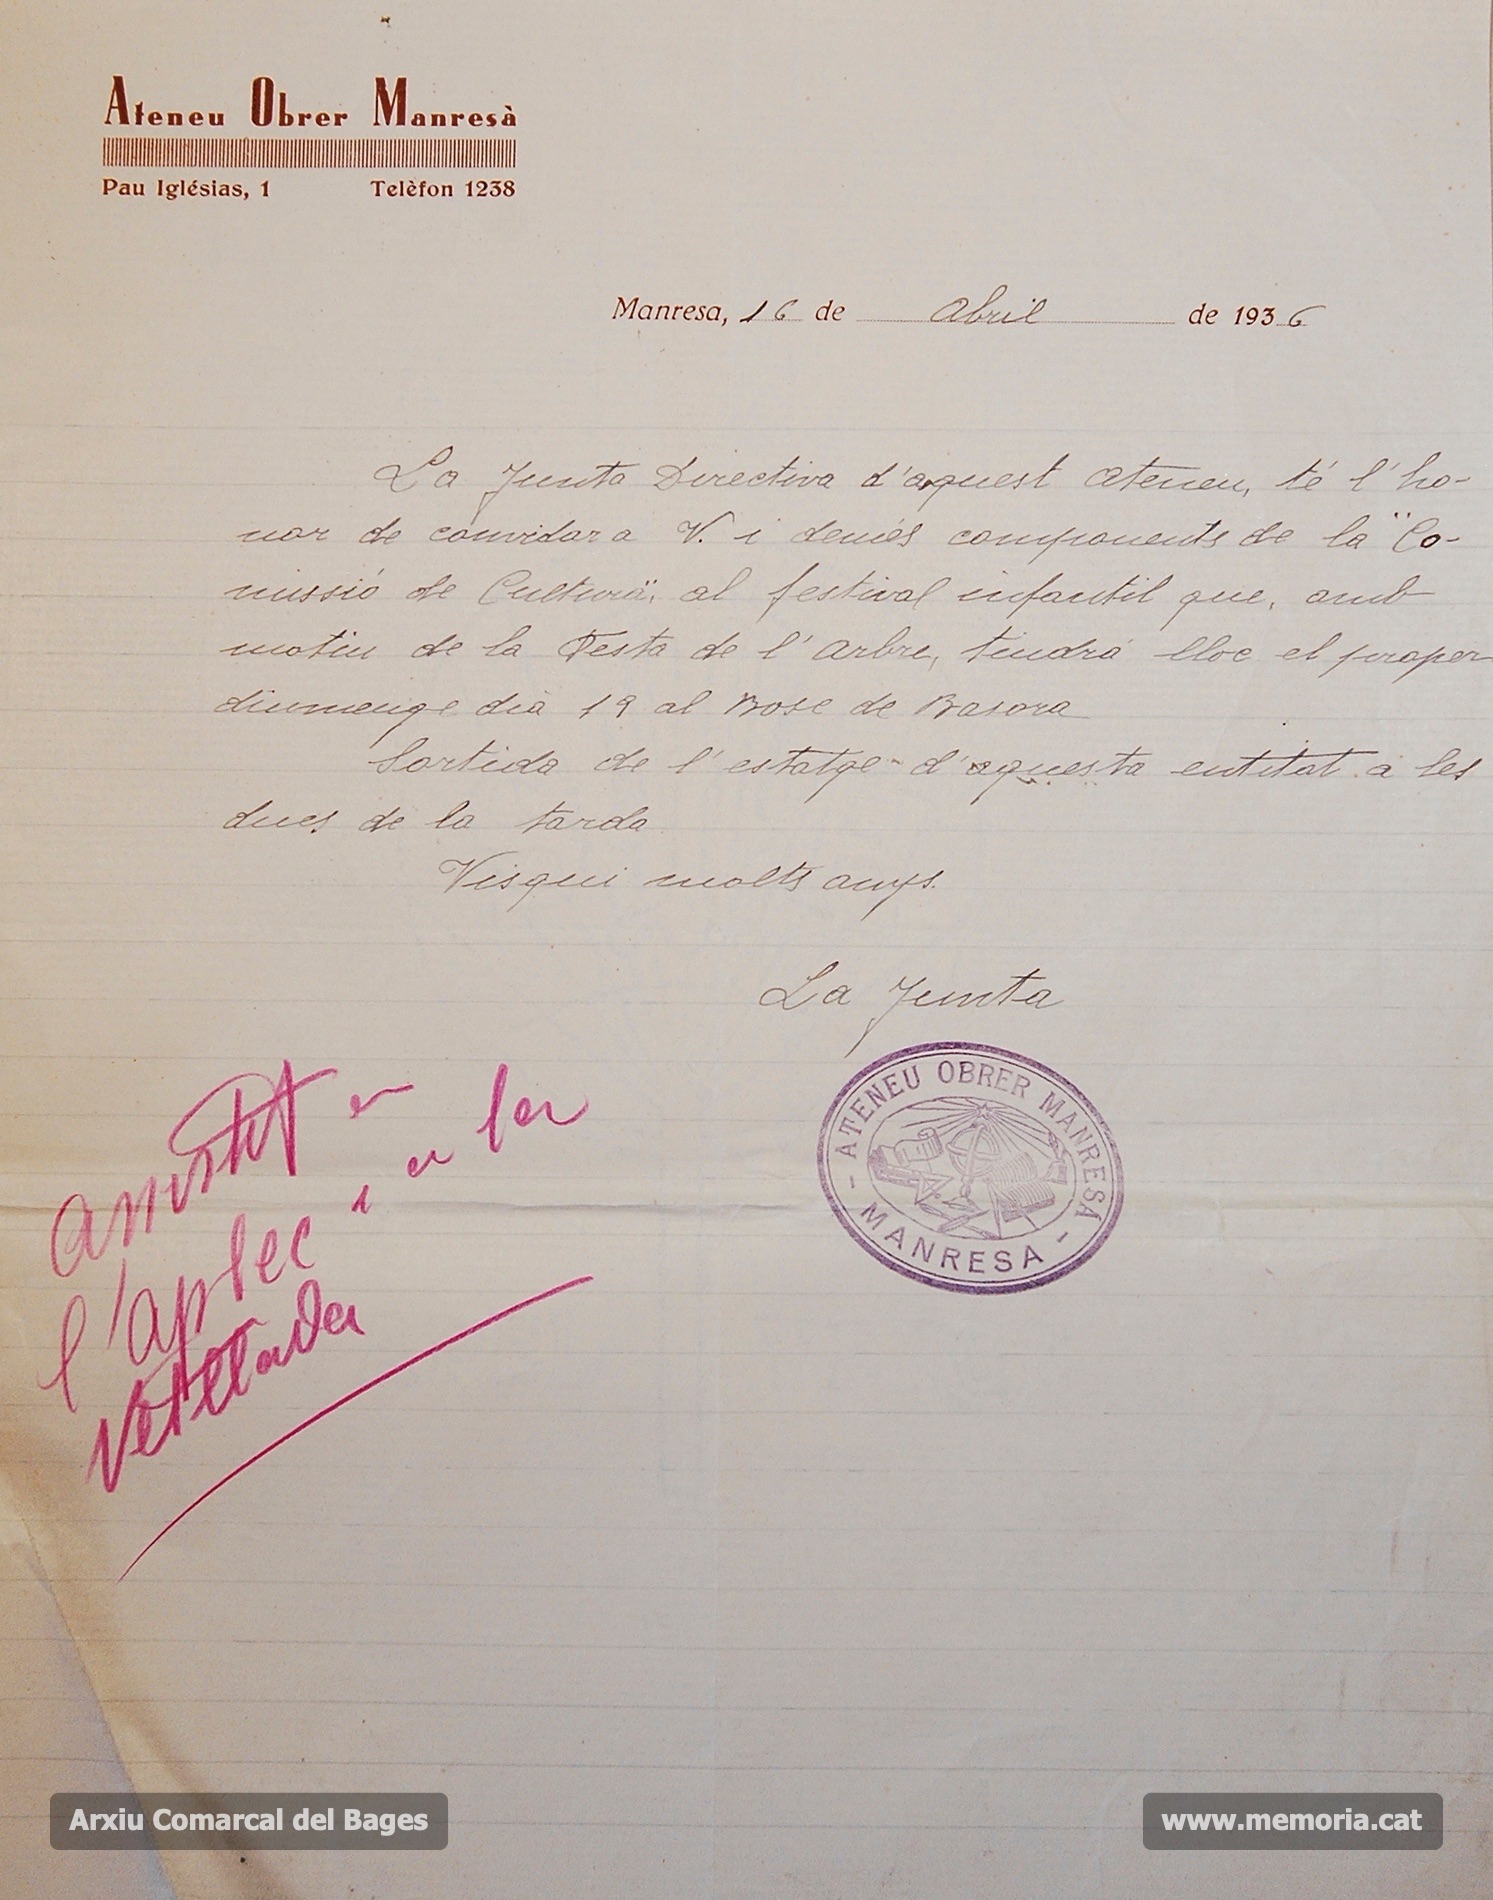 Ateneu Obrer Manresà
Pau Iglésias, 1 Telèfon 1238
Manresa, 16 de Abril de 1936
La Junta Directiva d'aquest Ateneu, té l'ho-
nor de convidar a V. i demés components de la "Co-
missió de Cultura", al festival infantil que, amb
motiu de la Festa de l'Arbre, tindrá lloc el proper
diumenge dia 19 al Bosc de Basora
Sortida de l'estatge d'aquesta entitat a les
dues de la tarda
Visqui molts anys.
La Junta
ATENEU OBRER MANRESÀ
- MANRESA -
Assistit en
l'aplec i en la
Vetllada
Arxiu Comarcal del Bages
www.memoria.cat